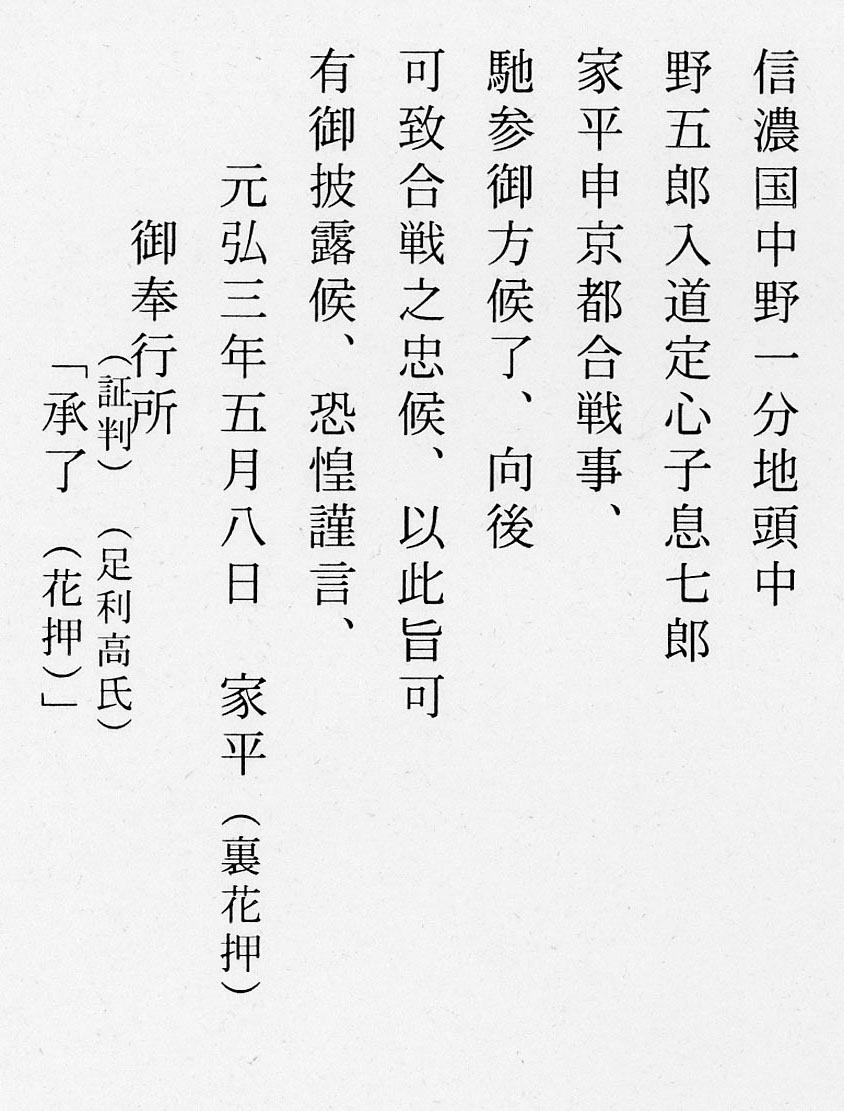 信濃国中野一分地頭中
野五郎入道定心子息七郎
家平申京都合戦事、
馳参御方候了、向後
可致合戦之忠候、以此旨可
有御披露候、恐惶謹言、
元弘三年五月八日　家平（裏花押）
御奉行所
（証判）（足利高氏）
「承了（花押）」